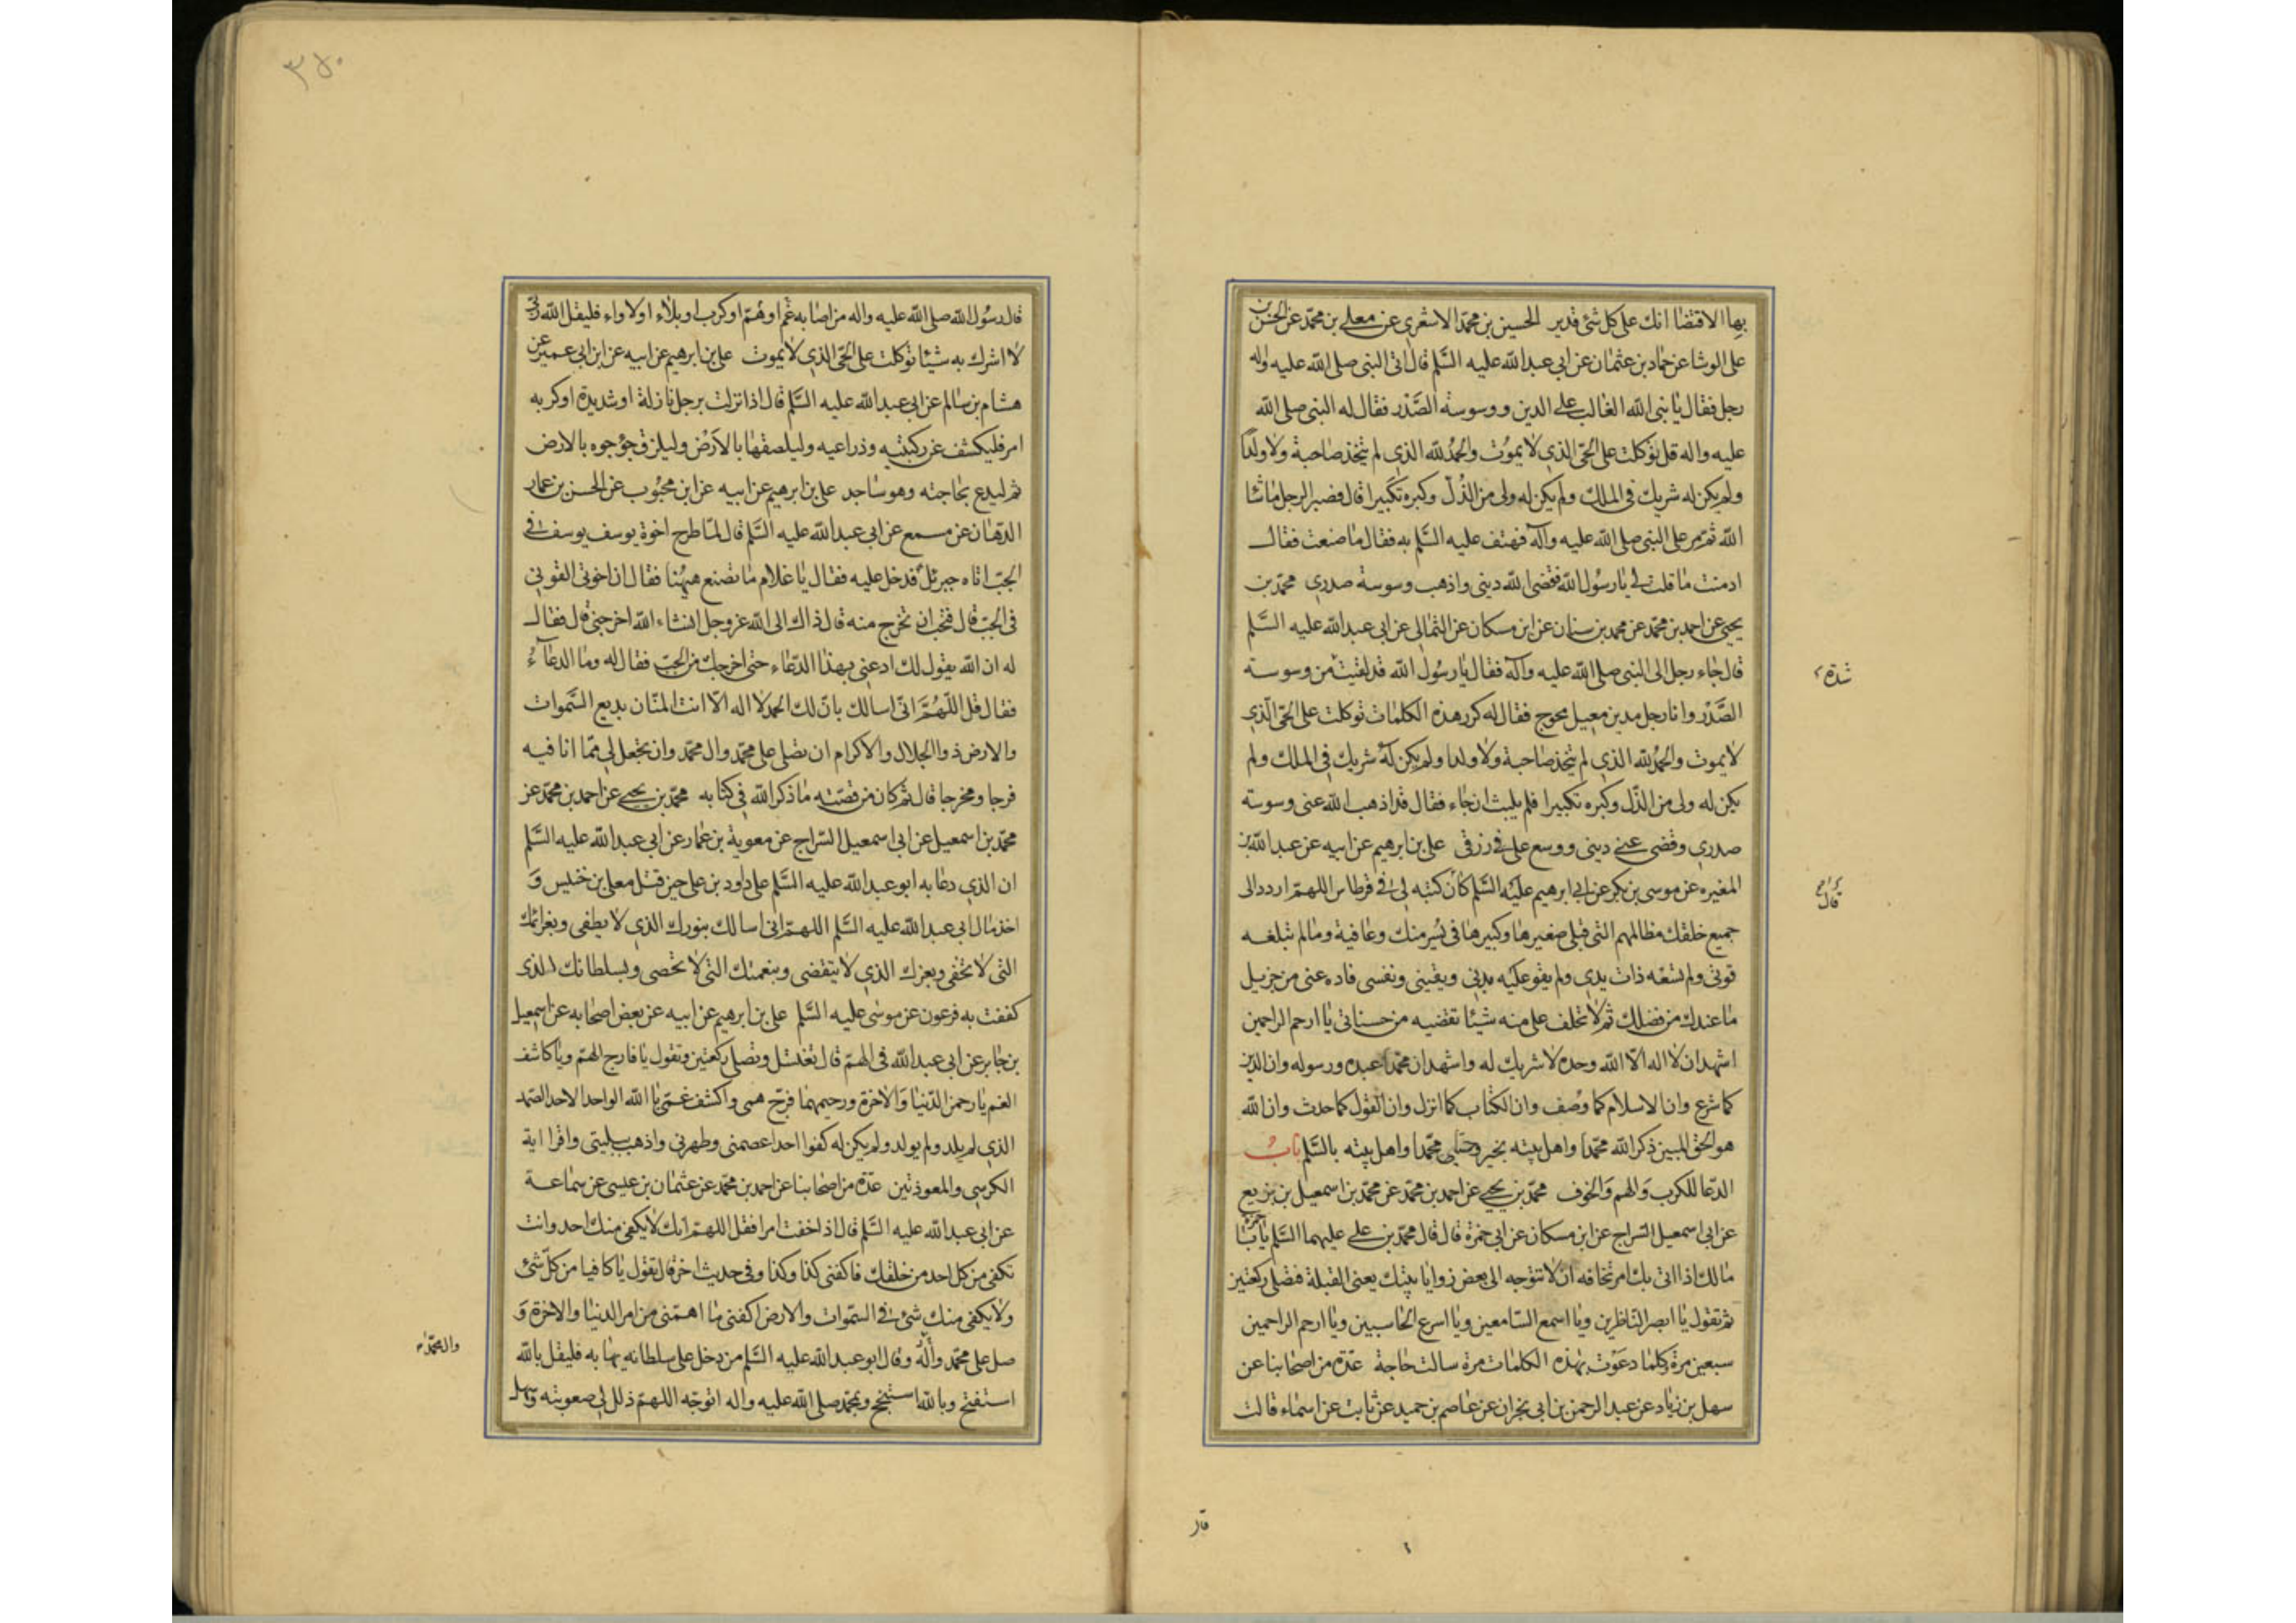 بها الاقتضا انك على كل شئ قدير الحسين بن محمد الاشعري عن معلى بن محمد عن الحسن بن
على الوشا عن حماد بن عثمان عن ابى عبد الله عليه السلم قال اتى النبى صلى الله عليه واله
رجل فقال يا نبى الله الغالب على الدين ووسوسة الصدر فقال له النبى صلى الله
عليه واله قل توكلت على الحى الذي لا يموت والحمد لله الذي لم يتخذ صاحبة ولا ولدا
ولم يكن له شريك فى الملك ولم يكن له ولى من الذل وكبره تكبيرا قال فصبر الرجل ما شا
الله ثم مر على النبى صلى الله عليه وآله فهتف عليه السلم به فقال ما صنعت فقال
ادمنت ما قلت لى يا رسول الله فقضى الله دينى واذهب وسوسة صدري محمد بن
يحيى عن احمد بن محمد عن محمد بن سنان عن ابن مسكان عن الثمالى عن ابى عبد الله عليه السلم
قال جاء رجل الى النبى صلى الله عليه وآله فقال يا رسول الله قد لقيت من وسوسة
شدة
الصدر وانا رجل مدين معيل محوج فقال له كرر هذه الكلمات توكلت على الحى الذي
لا يموت والحمد لله الذي لم يتخذ صاحبة ولا ولدا ولم يكن له شريك فى الملك ولم
يكن له ولى من الذل وكبره تكبيرا فلم يلبث ان جاء فقال قد اذهب الله عنى وسوسة
صدري وقضى عنى دينى ووسع على فى رزقى على بن ابرهيم عن ابيه عن عبد الله بن
المغيره عن موسى بن بكر عن ابى ابرهيم عليه السلم كان كتبه لى فى قرطاس اللهم اردد الى
قال
جميع خلقك مظالمهم التى قبلى صغيرها وكبيرها فى يسر منك وعافية وما لم تبلغه
قوتى ولم تسعه ذات يدي ولم يقو عليه بدنى ويقينى ونفسى فاده عنى من جزيل
ما عندك من فضلك ثم لا تخلف على منه شيئا تقضيه من حسناتى يا ارحم الراحمين
اشهد ان لا اله الا الله وحده لا شريك له واشهد ان محمدا عبده ورسوله وان الدين
كما شرع وان الاسلام كما وصف وان الكتاب كما انزل وان القول كما حدث وان الله
هو الحق المبين ذكر الله محمدا واهل بيته بخير وحيى محمدا واهل بيته بالسلم باب
الدعا للكرب والهم والخوف محمد بن يحيى عن احمد بن محمد عن محمد بن اسمعيل بن بزيع
عن ابى اسمعيل السراج عن ابن مسكان عن ابى حمزة قال قال محمد بن على عليهما السلم يا با حمزة
مالك اذا اتى بك امر تخافه ان لا تتوجه الى بعض زوايا بيتك يعنى القبلة فتصلى ركعتين
ثم تقول يا ابصر الناظرين ويا اسمع السامعين ويا اسرع الحاسبين ويا ارحم الراحمين
سبعين مرة كلما دعوت بهذه الكلمات مرة سالت حاجة عدة من اصحابنا عن
سهل بن زياد عن عبد الرحمن بن ابى نجران عن عاصم بن حميد عن ثابت عن اسماء قالت
قال
٣٧٠
قال رسول الله صلى الله عليه واله من اصابه غم او هم او كرب او بلاء او لاواء فليقل الله ربى
لا اشرك به شيئا توكلت على الحى الذي لا يموت على بن ابرهيم عن ابيه عن ابن ابى عمير عن
هشام بن سالم عن ابى عبد الله عليه السلم قال اذا نزلت برجل نازلة او شديدة او كربه
امر فليكشف عن ركبتيه وذراعيه وليلصقها بالارض وليلزق جؤجوه بالارض
ثم ليدع بحاجته وهو ساجد على بن ابرهيم عن ابيه عن ابن محبوب عن الحسن بن عمار
الدهان عن مسمع عن ابى عبد الله عليه السلم قال لما طرح اخوة يوسف يوسف فى
الجب اتاه جبرئل فدخل عليه فقال يا غلام ما تصنع ههنا فقال ان اخوتى القونى
فى الجب قال فتحب ان تخرج منه قال ذاك الى الله عز وجل انشاء الله اخرجنى قال فقال
له ان الله يقول لك ادعنى بهذا الدعاء حتى اخرجك من الجب فقال له وما الدعآء
فقال قل اللهم انى اسالك بان لك الحمد لا اله الا انت المنان بديع السموات
والارض ذو الجلال والاكرام ان تصلى على محمد وال محمد وان تجعل لى مما انا فيه
فرجا ومخرجا قال ثم كان من قصته ما ذكر الله فى كتابه محمد بن يحيى عن احمد بن محمد عن
محمد بن اسمعيل عن ابى اسمعيل السراج عن معوية بن عمار عن ابى عبد الله عليه السلم
ان الذي دعا به ابو عبد الله عليه السلم على داود بن على حين قتل معلى بن خنيس و
اخذ مال ابى عبد الله عليه السلم اللهم انى اسالك بنورك الذي لا يطفى وبعزائمك
التى لا تخفى وبعزك الذي لا ينقضى وبنعمتك التى لا تحصى وبسلطانك الذى
كففت به فرعون عن موسى عليه السلم على بن ابرهيم عن ابيه عن بعض اصحابه عن اسمعيل
بن جابر عن ابى عبد الله فى الهم قال تغتسل وتصلى ركعتين وتقول يا فارج الهم ويا كاشف
الغم يا رحمن الدنيا والاخرة ورحيمهما فرج همى واكشف غمى يا الله الواحد الاحد الصمد
الذي لم يلد ولم يولد ولم يكن له كفوا احد اعصمنى وطهرنى واذهب ببليتى واقرا اية
الكرسى والمعوذتين عدة من اصحابنا عن احمد بن محمد عن عثمان بن عيسى عن سماعة
عن ابى عبد الله عليه السلم قال اذا خفت امرا فقل اللهم انك لا يكفى منك احد وانت
تكفى من كل احد من خلقك فاكفنى كذا وكذا وفى حديث اخر قال تقول يا كافيا من كل شئ
ولا يكفى منك شئ فى السموات والارض اكفنى ما اهمنى من امر الدنيا والاخرة و
صل على محمد وآله وقال ابو عبد الله عليه السلم من دخل على سلطان يهابه فليقل بالله
وال محمد
استفتح وبالله استنجح وبمحمد صلى الله عليه واله اتوجه اللهم ذلل لى صعوبته وسهل